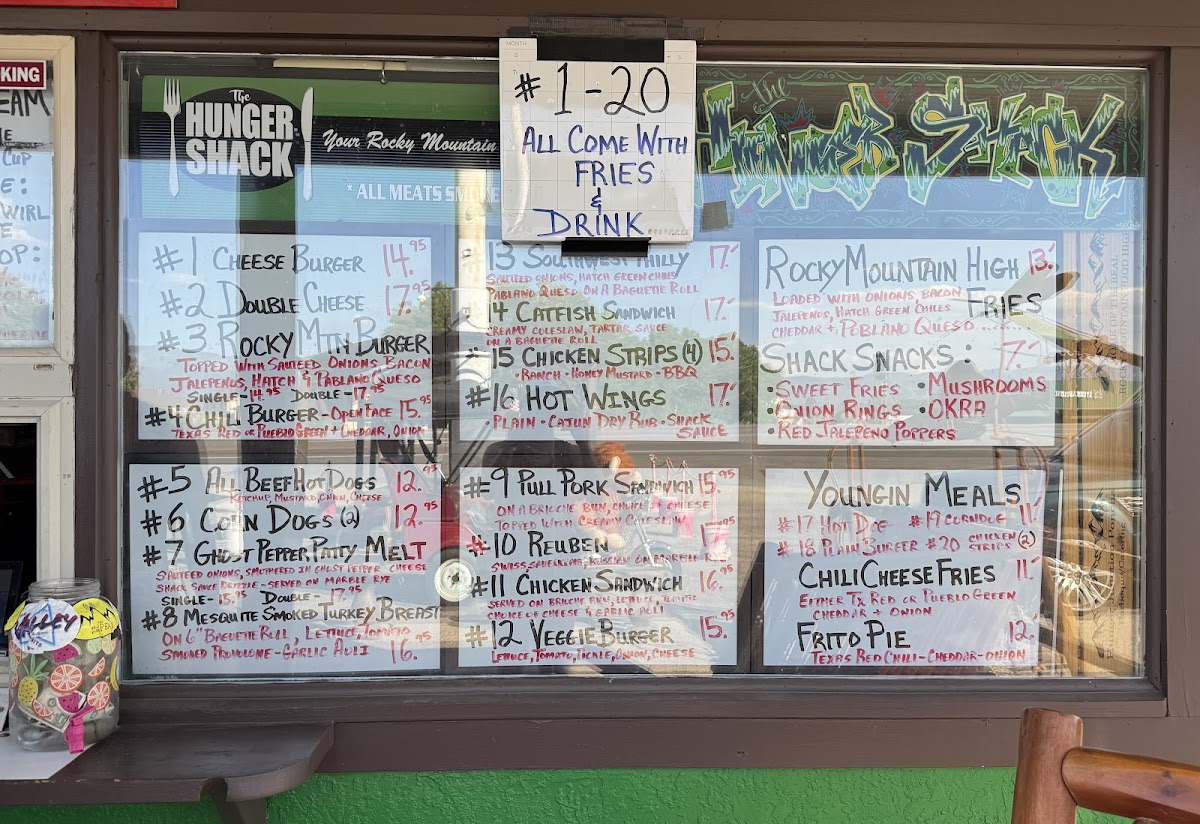 KING
EAM
CUP
WIRL
OP:
The
HUNGER
SHACK
Your Rocky Mountain
*ALL MEATS SMOKE
MONTH
#1-20
ALL COME WITH
FRIES
&
DRINK
SHACK
#1 CHEESE BURGER 14.95
#2 DOUBLE CHEESE 17.95
#3 ROCKY MTN BURGER
TOPPED WITH SAUTEED ONIONS, BACON
JALEPENOS, HATCH & PABLANO QUESO
SINGLE - 14.95 DOUBLE - 17.95
#4 CHILI BURGER - OPEN FACE 15.95
TEXAS RED OR PUEBLO GREEN + CHEDDAR, ONION
13 SOUTHWEST PHILLY 17.
SAUTEED ONIONS, HATCH GREEN CHILES
PABLANO QUESO ON A BAGUETTE ROLL
14 CATFISH SANDWICH 17.
CREAMY COLESLAW, TARTAR SAUCE
ON A BAGUETTE ROLL
#15 CHICKEN STRIPS (4) 15.
• RANCH - HONEY MUSTARD - BBQ
#16 HOT WINGS 17.
PLAIN - CAJUN DRY RUB - SHACK
SAUCE
ROCKY MOUNTAIN HIGH 13.
LOADED WITH ONIONS, BACON FRIES
JALEPENOS, HATCH GREEN CHILES
CHEDDAR +, POBLANO QUESO
SHACK SNACKS: 7.
• SWEET FRIES • MUSHROOMS
• ONION RINGS • OKRA
• RED JALEPENO POPPERS
#5 ALL BEEF HOT DOGS 12.95
KETCHUP, MUSTARD, ONION, CHEESE
#6 CORN DOGS (2) 12.95
#7 GHOST PEPPER PATTY MELT
SAUTEED ONIONS, SMOTHERED IN GHOST PEPPER CHEESE
SHACK SAUCE DRIZZLE - SERVED ON MARBLE RYE
SINGLE - 15.95 DOUBLE - 17.95
#8 MESQUITE SMOKED TURKEY BREAST
ON 6" BAGUETTE ROLL, LETTUCE, TOMATO
SMOKED PROVOLONE - GARLIC AULI 16.95
#9 PULL PORK SANDWICH 15.95
ON A BRIOCHE BUN, CHOICE OF CHEESE
TOPPED WITH CREAMY COLESLAW
#10 REUBEN 17.95
SWISS, SAUERKRAUT, RUSSIAN ON MARBLE RYE
#11 CHICKEN SANDWICH 16.95
SERVED ON BRIOCHE BUN, LETTUCE, TOMATO
CHOICE OF CHEESE & GARLIC AULI
#12 VEGGIE BURGER 15.95
LETTUCE, TOMATO, PICKLE, ONION, CHEESE
YOUNGIN MEALS 11.
#17 HOT DOG #19 CORNDOG
#18 PLAIN BURGER #20 CHICKEN STRIPS (2)
CHILI CHEESE FRIES 11.
EITHER TX RED OR PUEBLO GREEN
CHEDDAR + ONION
FRITO PIE 12.
TEXAS RED CHILI - CHEDDAR - ONION